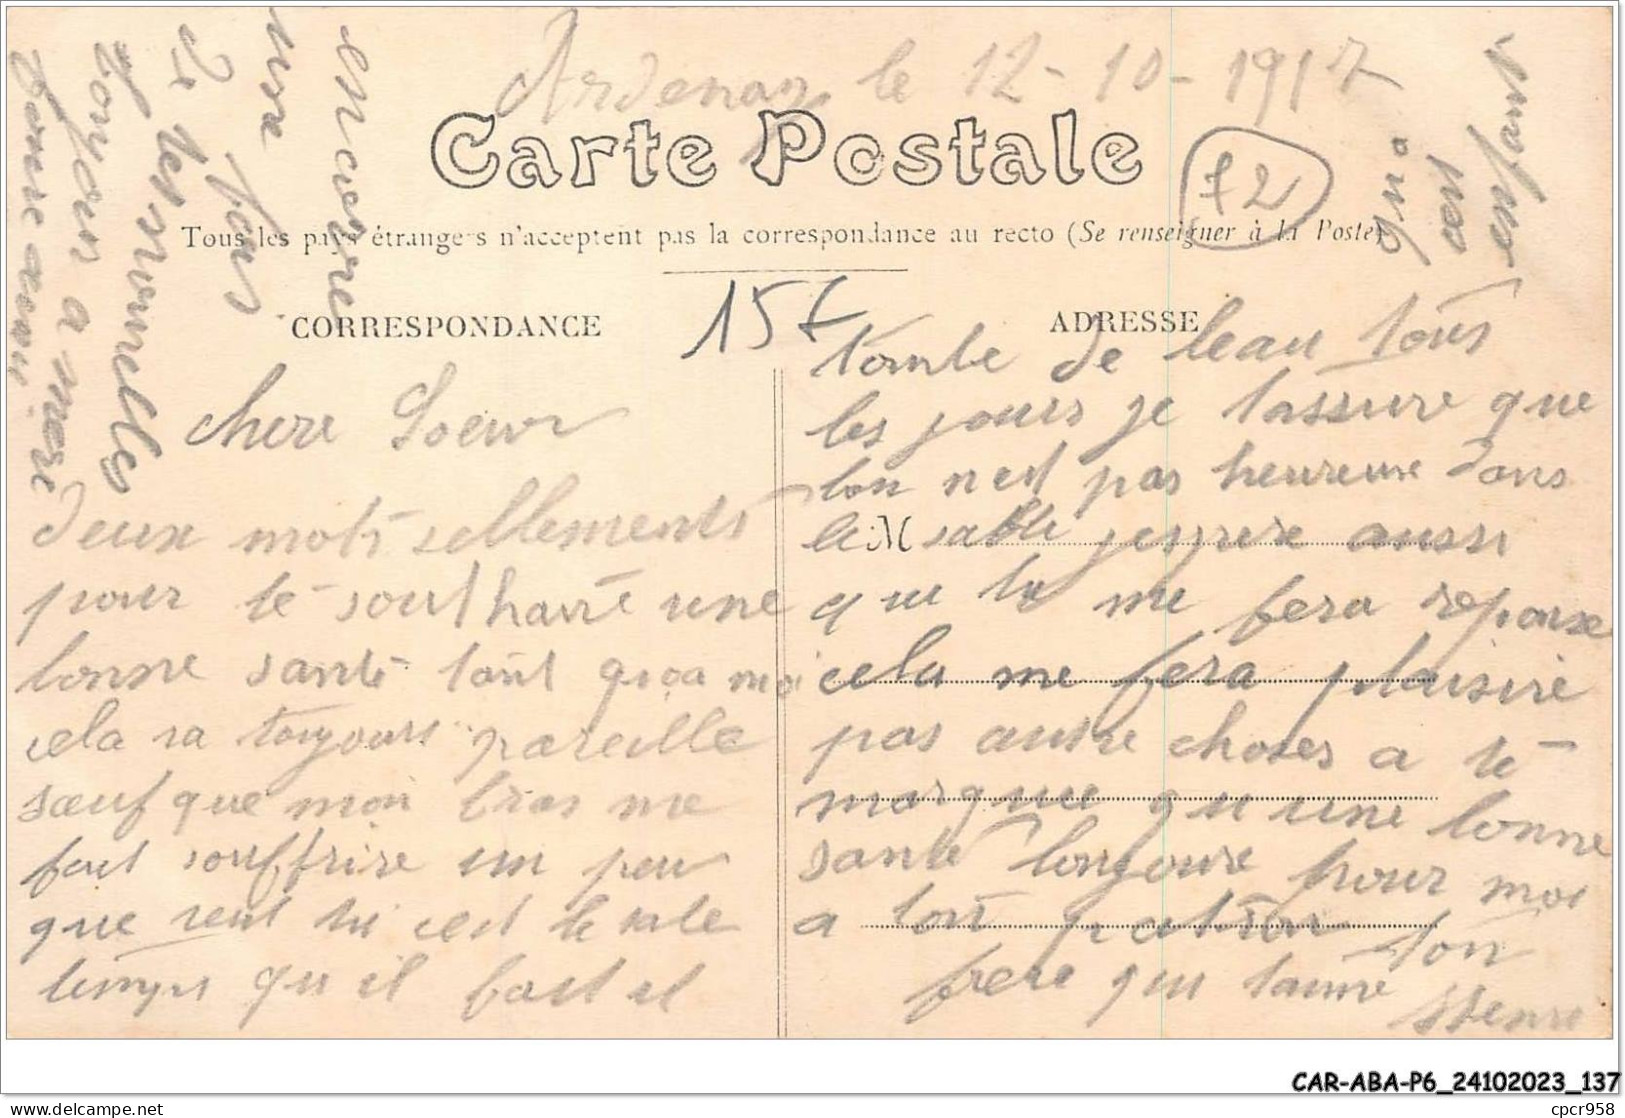 Ardenay le 12-10-1917
Carte Postale
72
Tous les pays étrangers n'acceptent pas la correspondance au recto (Se renseigner à la Poste)
CORRESPONDANCE
15f
ADRESSE
chere Soeur
Deux mots sellements
pour te southaité une
bonne santé tant qua moi
cela va toujours pareille
sauf que mon bras me
fait souffrire un peu
que veut tu cest le sale
temps qu il fait il
tombe de leau tous
les jours je tassure que
lon nest pas heureux dans
le M sable jespere aussi
que tu me fera reponse
cela me fera plaisire
pas autre choses a te
marquer qu une bonne
santé toujours pour moi
a ton patron ton
frere qui taime
Henri
bonne amie
toujour a mere
des nouvelles
2 fois
encoivre
qui a
cent
enfant
CAR-ABA-P6_24102023_137
cpcr958